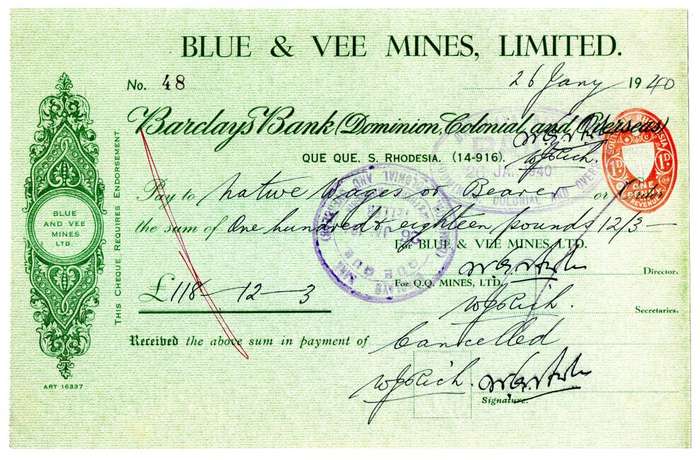 BLUE & VEE MINES, LIMITED.
No. 48
26 Jany 1940
Barclays Bank (Dominion, Colonial and Overseas)
QUE QUE, S. RHODESIA. (14-916).
W J Rich.
Pay to Native Wages or Bearer or
the sum of One hundred & eighteen pounds 12/3 —
For BLUE & VEE MINES, LTD.
Director.
For Q.Q. MINES, LTD.
£118 — 12 — 3
W J Rich.
Secretaries.
Received the above sum in payment of
Cancelled
W J Rich.
Signature
THIS CHEQUE REQUIRES ENDORSEMENT
BLUE
AND VEE
MINES
LTD.
ART 16337
26 JA. 1940
COLONIAL AND OVERSEAS
QUE QUE
1D
1D
ONE